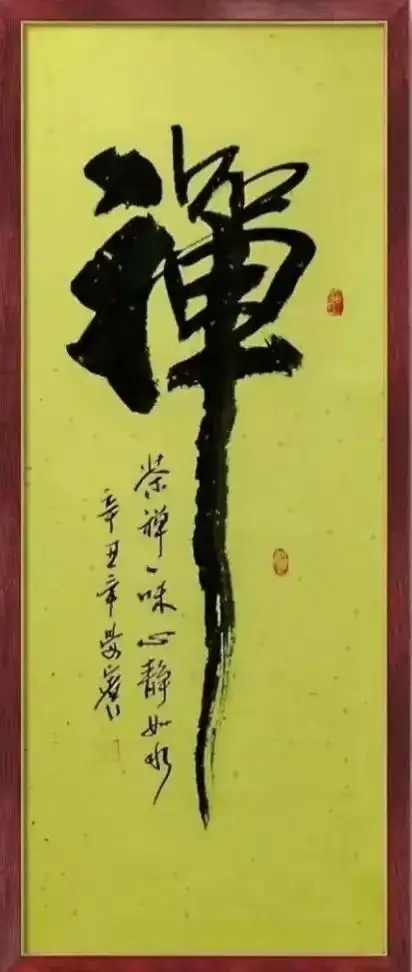 禪
茶禅一味心静如水
辛丑年